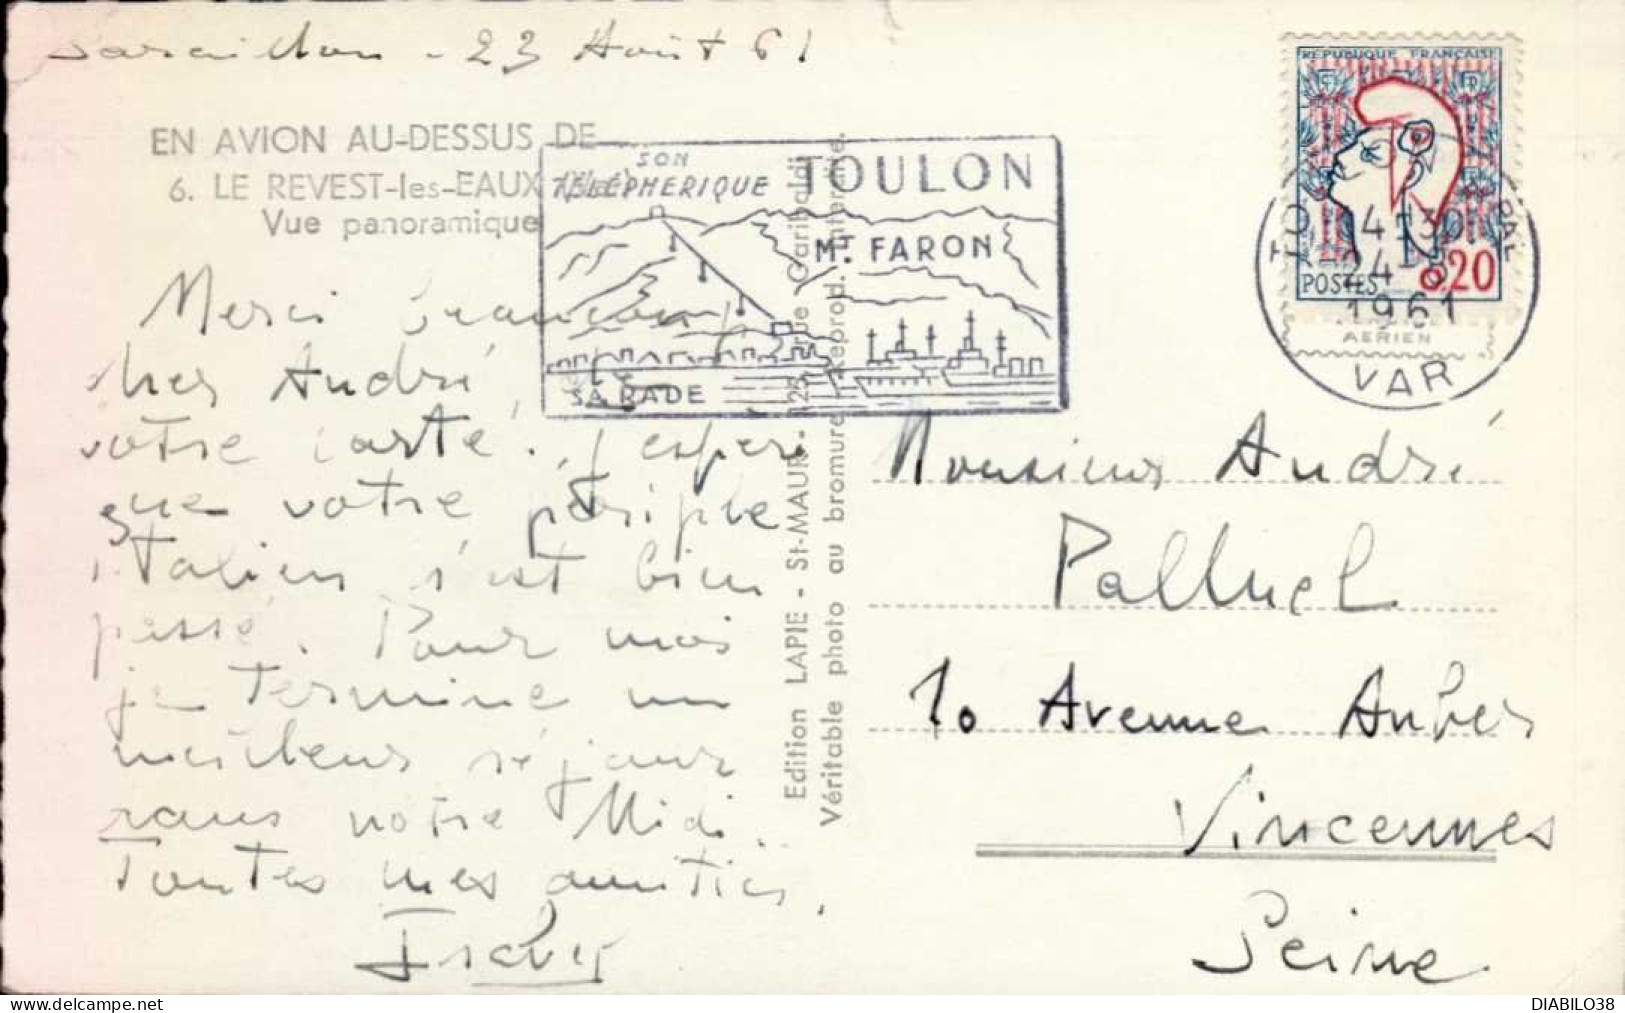 23 Août 61
EN AVION AU-DESSUS DE
6. LE REVEST-les-EAUX (Var)
Vue panoramique
SON
TÉLÉPHERIQUE
TOULON
MT. FARON
SA RADE
REPUBLIQUE FRANÇAISE
POSTES 0,20
24-8
1961
AERIEN
VAR
Merci beaucoup
cher André, de
votre carte. J'espère
que votre périple
italien s'est bien
passé. Pour moi
je termine un
meilleur séjour
dans notre Midi.
Toutes mes amitiés.
Edition LAPIE - St-MAUR - 123, rue Garibaldi
Véritable photo au bromure. Reprod. interdite.
Monsieur André
Palluel
10 Avenue Auber
Vincennes
Seine
DIABILO38